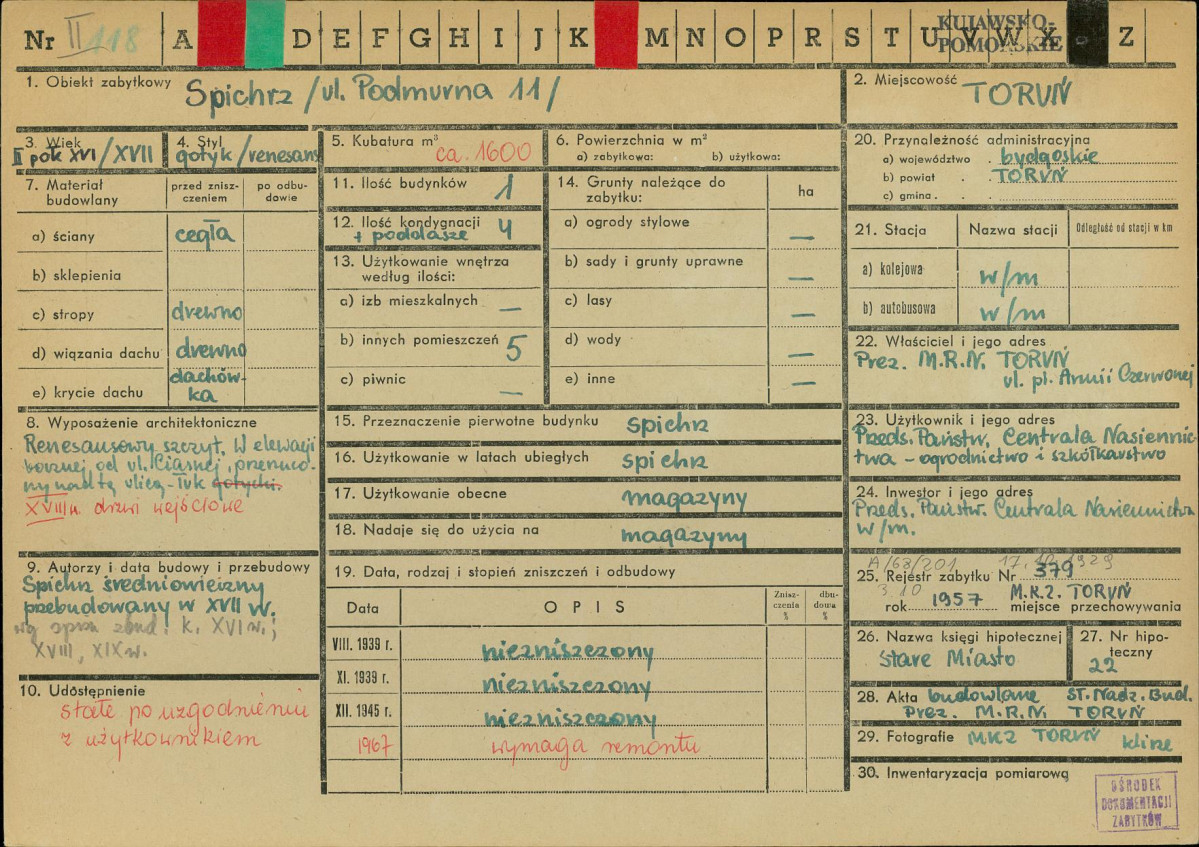 Nr II 118 A D E F G H I J K M N O P R S T U V W X Z
KUJAWSKO-
POMORSKIE
1. Obiekt zabytkowy Spichrz /ul. Podmurna 11/
2. Miejscowość TORUŃ
3. Wiek
II poł XVI/XVII
4. Styl
gotyk/renesans
5. Kubatura m³ ca. 1600
6. Powierzchnia w m²
a) zabytkowa: b) użytkowa:
7. Materiał budowlany
przed znisz-
czeniem
po odbu-
dowie
a) ściany cegła
b) sklepienia
c) stropy drewno
d) wiązania dachu drewno
e) krycie dachu dachów-
ka
8. Wyposażenie architektoniczne
Renesansowy szczyt. W elewacji
bocznej od ul. Ciasnej, przerzuco-
ny nad tą ulicą - łuk gotycki.
XVIII w. drzwi wejściowe
9. Autorzy i data budowy i przebudowy
Spichrz średniowieczny
przebudowany w XVII w.
wg spraw. zbud. k. XVI w.;
XVIII, XIX w.
10. Udostępnienie
stałe po uzgodnieniu
z użytkownikiem
11. Ilość budynków 1
12. Ilość kondygnacji 4
+ poddasze
13. Użytkowanie wnętrza
według ilości:
a) izb mieszkalnych —
b) innych pomieszczeń 5
c) piwnic —
14. Grunty należące do
zabytku:
ha
a) ogrody stylowe —
b) sady i grunty uprawne —
c) lasy —
d) wody —
e) inne —
15. Przeznaczenie pierwotne budynku spichrz
16. Użytkowanie w latach ubiegłych spichrz
17. Użytkowanie obecne magazyny
18. Nadaje się do użycia na magazyny
19. Data, rodzaj i stopień zniszczeń i odbudowy
Data OPIS
Znisz-
czenia
%
dbu-
dowa
%
VIII. 1939 r. niezniszczony
XI. 1939 r. niezniszczony
XII. 1945 r. niezniszczony
1967 wymaga remontu
20. Przynależność administracyjna
a) województwo bydgoskie
b) powiat TORUŃ
c) gmina
21. Stacja Nazwa stacji Odległość od stacji w km
a) kolejowa w/m
b) autobusowa w/m
22. Właściciel i jego adres
Prez. M.R.N. TORUŃ
ul. pl. Armii Czerwonej
23. Użytkownik i jego adres
Przeds. Państw. Centrala Nasiennic-
twa - ogrodnictwo i szkółkarstwo
24. Inwestor i jego adres
Przeds. Państw. Centrala Nasiennictwa
w/m.
A/68/201 17.10.1929
25. Rejestr zabytku Nr 379
3.10
rok 1957 M.K.Z. TORUŃ
miejsce przechowywania
26. Nazwa księgi hipotecznej
Stare Miasto
27. Nr hipo-
teczny
22
28. Akta budowlane ST. Nadz. Bud.
Prez. M.R.N. TORUŃ
29. Fotografie MKZ TORUŃ klisze
30. Inwentaryzacja pomiarowa
OŚRODEK
DOKUMENTACJI
ZABYTKÓW